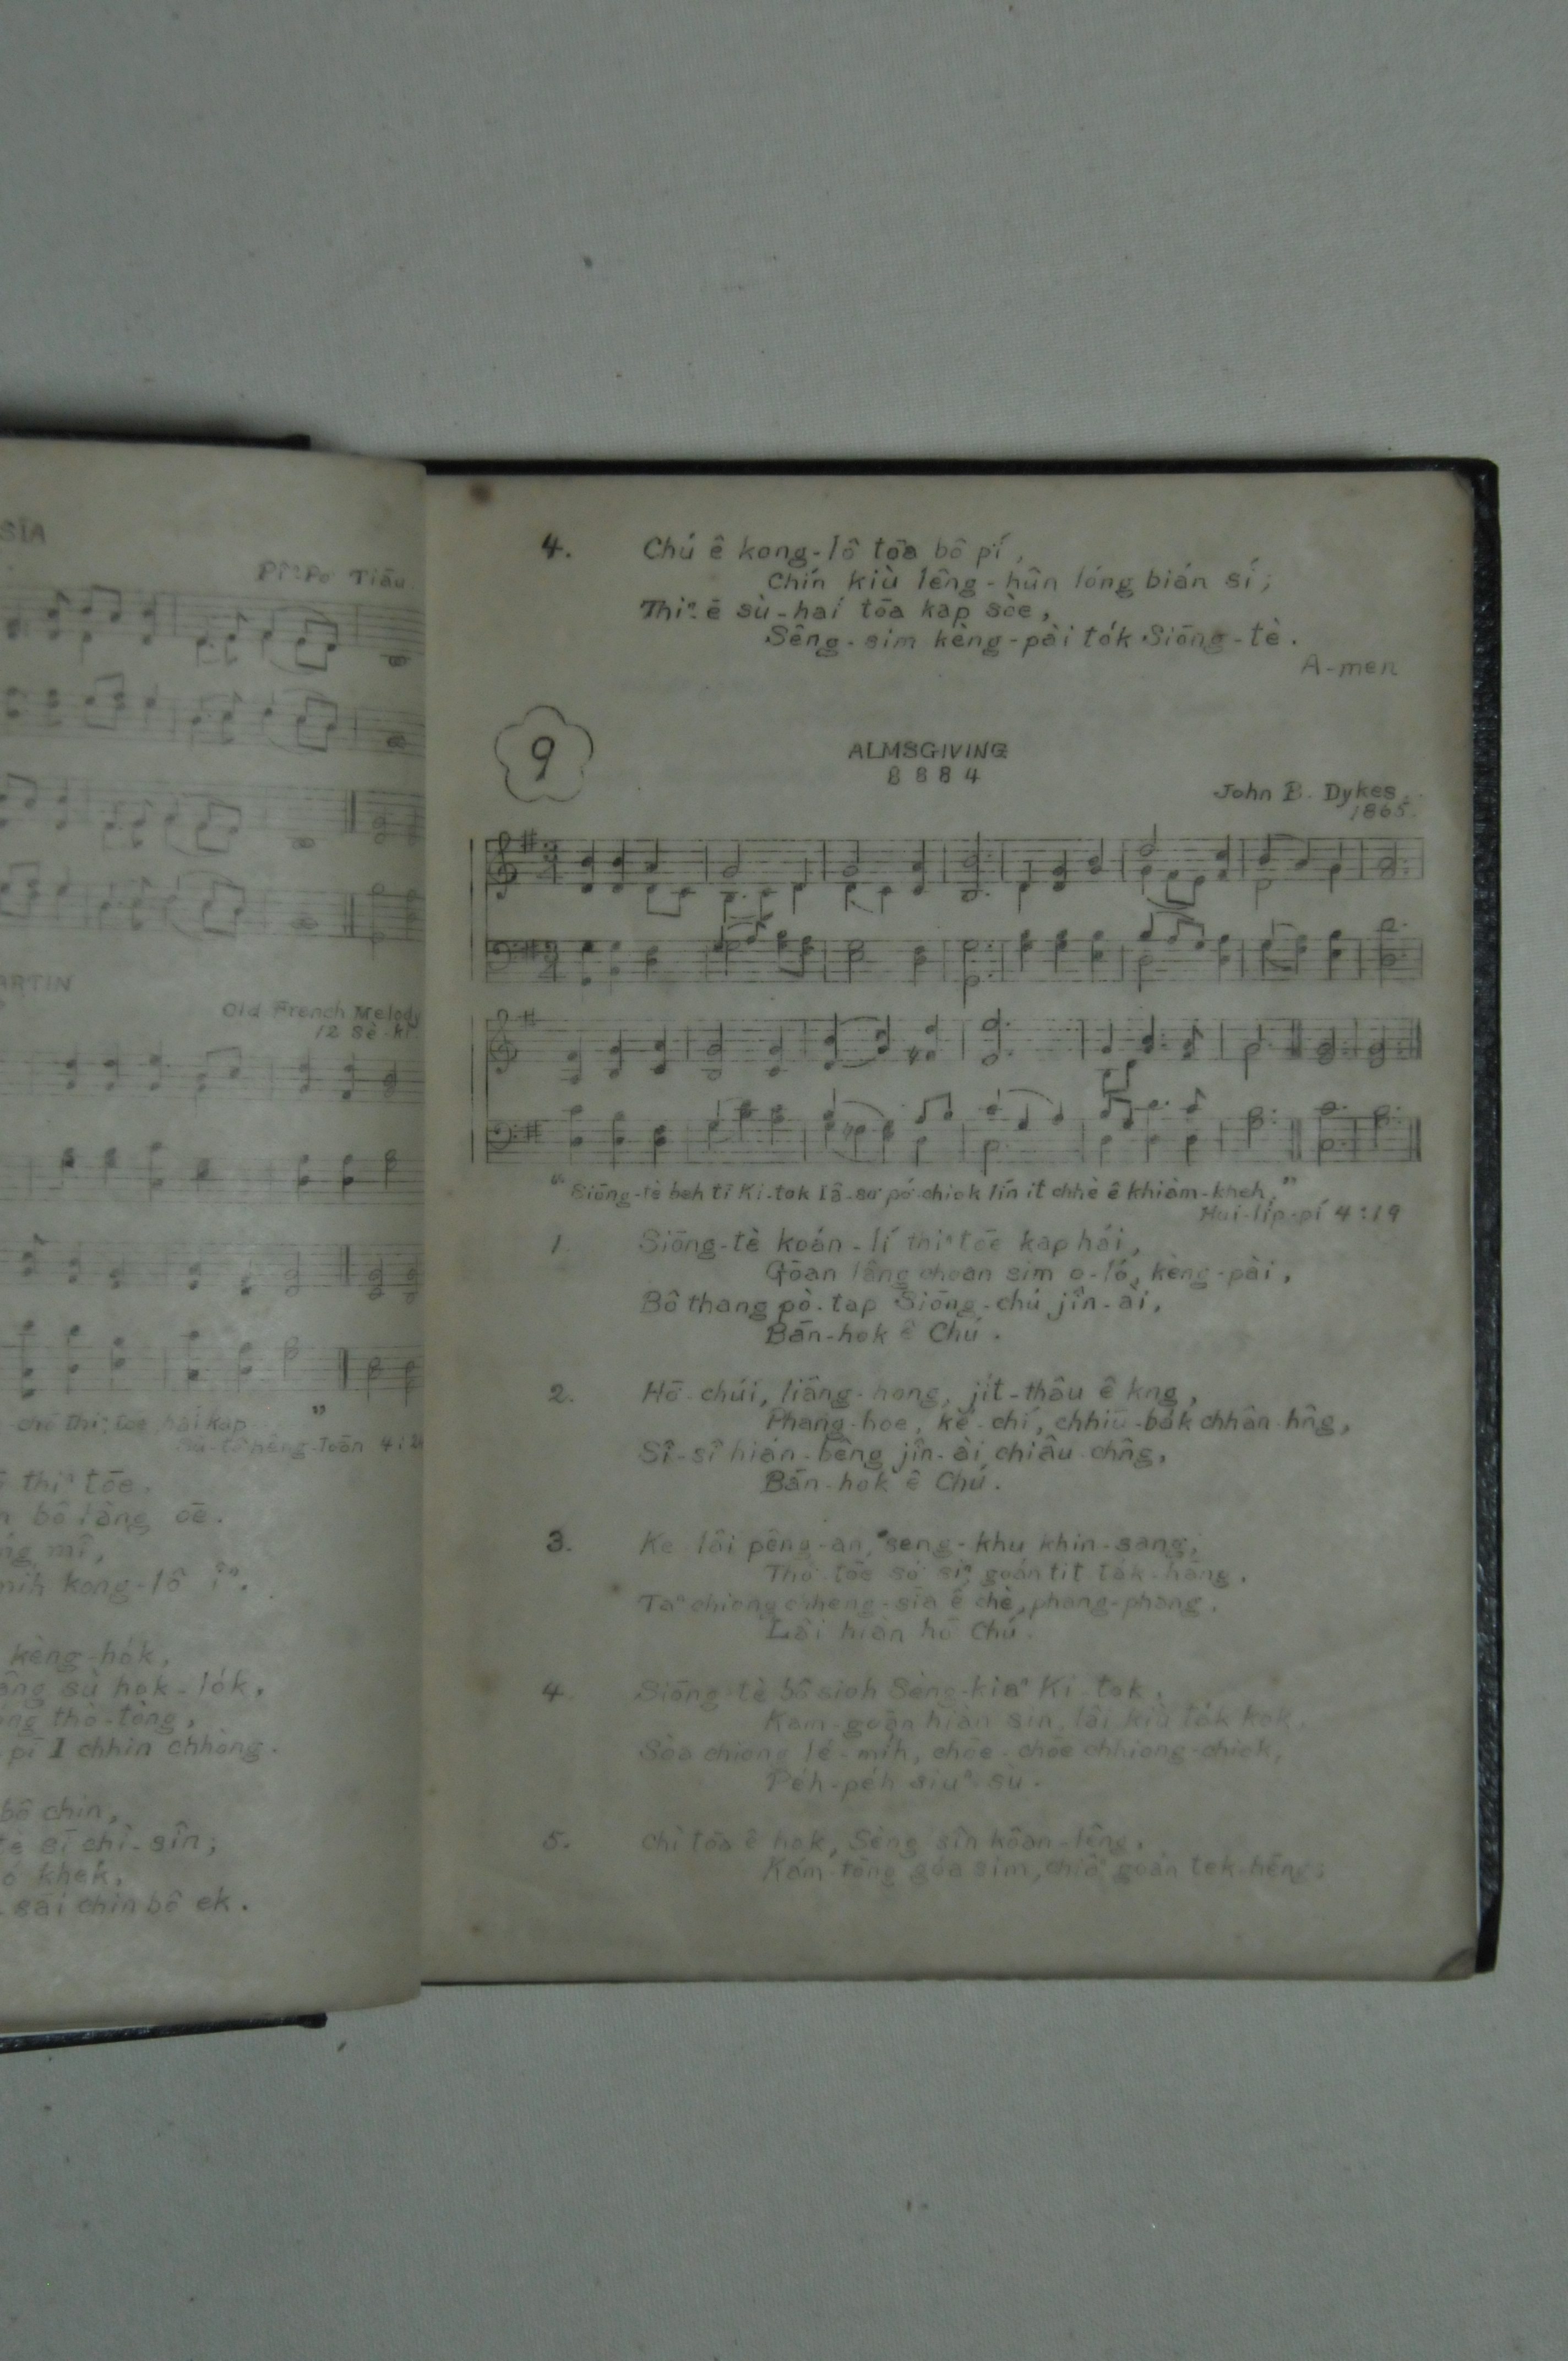 SIA
Pîⁿ-Po Tiāu
ARTIN
Old French Melody
12 Sè-kí
-chō thiⁿ tōe hái kap ”
hēng-Toān 4:24
thiⁿ tōe.
bô lâng oē.
mî,
mih kong-lô îⁿ.
kèng-hók,
sù hok-lók,
thó-tòng,
pī 1 chhin chhòng.
bô chin,
sī chì-sîn;
khek,
sái chin bô ek.
4. Chú ê kong-lô tōa bô pí,
Chín kiù lêng-hûn lóng bián sí;
Thiⁿ-ē sù-hái tōa kap sòe,
Sêng-sim kèng-pài ták Siōng-tè.
A-men
9
ALMSGIVING
8 8 8 4
John B. Dykes
1865.
“Siōng-tè beh tī Ki-tok Iâ-so͘ pó͘-chiok lín it chhè ê khiàm-kheh.”
Hui-líp-pí 4:19
1. Siōng-tè koán-lí thiⁿ tōe kap hái,
Góan lâng choan sim o-ló, kèng-pài,
Bô thang pò-tap Siōng-chú jîn-ài,
Bān-hok ê Chú.
2. Hō-chúi, liâng-hong, jít-thâu ê kng,
Phang-hoe, ké-chí, chhiū-bák chhân hn̂g,
Sî-sî hián-bêng jîn-ài chiâu-chn̂g,
Bān-hok ê Chú.
3. Ke lāi pêng-an, seng-khu khin-sang,
Thó͘-tōe só͘ siⁿ goán tit ták-hāng.
Taⁿ chiong chheng-sīa ê chè, phang-phang.
Lâi hiàn hō͘ Chú.
4. Siōng-tè bô sioh Sèng-kiáⁿ Ki-tok,
Kam-goān hiàn sin, lâi kiù ták kok.
Sòa chiong lé-míh, chōe-chōe chhiong-chiok,
Péh-péh siúⁿ-sù.
5. Chì tōa ê hok, Sèng sîn koân-lêng,
Kám-tōng góa sim, chiâⁿ goán tek-hēng;